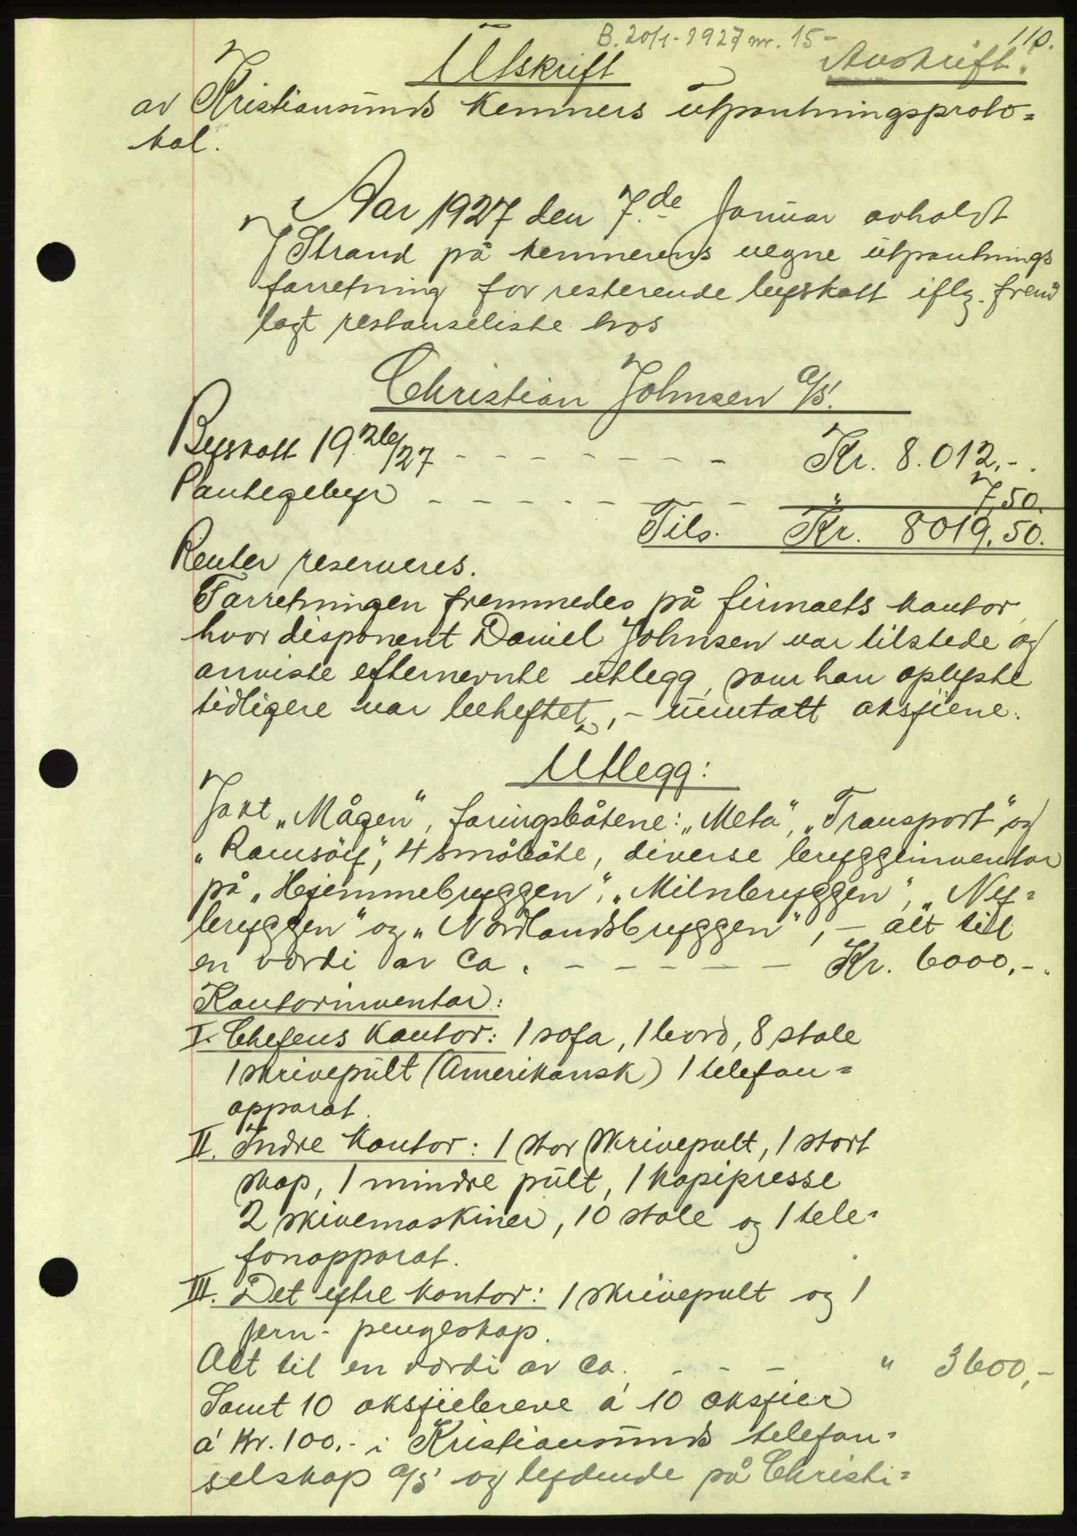 B. 20/1-1927 nr. 15-
110.
Utskrift
Avskrift.
av Kristiansunds kemners utpantningsproto=
kol.
Aar 1927 den 7.de Januar avholdt
J Strand på kemnerens vegne utpantnings
forretning for resterende byskatt iflg. frem
lagt restanseliste hos
Christian Johnsen a/s.
Byskatt 1926/27 - - - - - - - - Kr. 8.012,-.
Pantegebyr - - - - - - - - " 7,50.
Tils. Kr. 8019,50.
Renter reserveres.
Forretningen fremmedes på firmaets kontor,
hvor disponent Daniel Johnsen var tilstede og
anviste efternevnte utlegg, som han oplyste
tidligere var beheftet, - unntatt aksjene.
Utlegg:
Jakt "Mågen", føringsbåtene: "Meta", "Transport", og
"Ramsöy", 4 småbåte, diverse bryggeinventar
på "Hjemmebryggen", "Milnbryggen", "Ny=
bryggen" og "Nordlandsbryggen", - alt til
en verdi av ca. - - - - - - Kr. 6000,-.
Kontorinventar:
I. Chefens kontor: 1 sofa, 1 bord, 8 stole
1 skrivepult (Amerikansk) 1 telefon=
apparat.
II. Indre kontor: 1 stor skrivepult, 1 stort
skap, 1 mindre pult, 1 kopipresse
2 skivemaskiner, 10 stole og 1 tele=
fonapparat.
III. Det ytre kontor: 1 skrivepult og 1
jern- pengeskap.
Alt til en verdi av ca. - - - " 3600,-
Samt 10 aksjebreve á 10 aksjer
á kr. 100,- i Kristiansunds telefon=
selskap a/s og lydende på Christi=